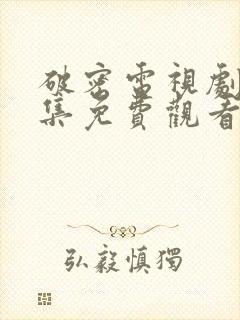 破密電視劇
集免費觀看
弘毅慎獨